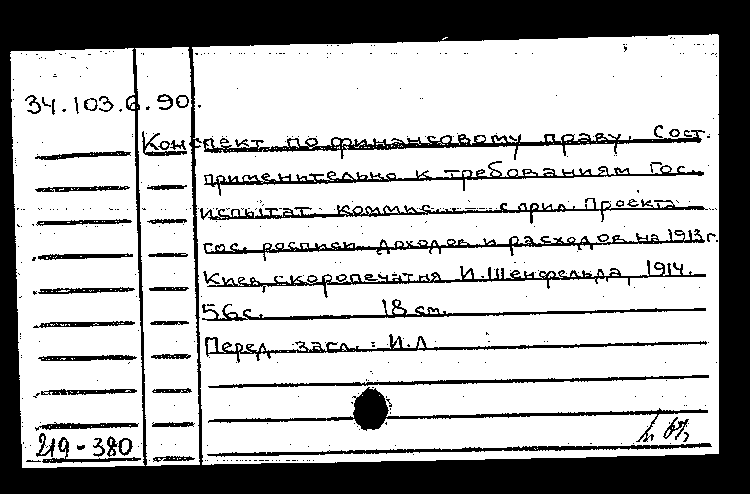 34.103.6.90.
Конспект по финансовому праву. Сост.
применительно к требованиям Гос.
испытат. коммис... с прил. Проекта
гос. росписи доходов и расходов на 1913 г.
Киев, скоропечатня И. Шенфельда, 1914.
56 с. 18 см.
Перед загл.: И.Л
219-380